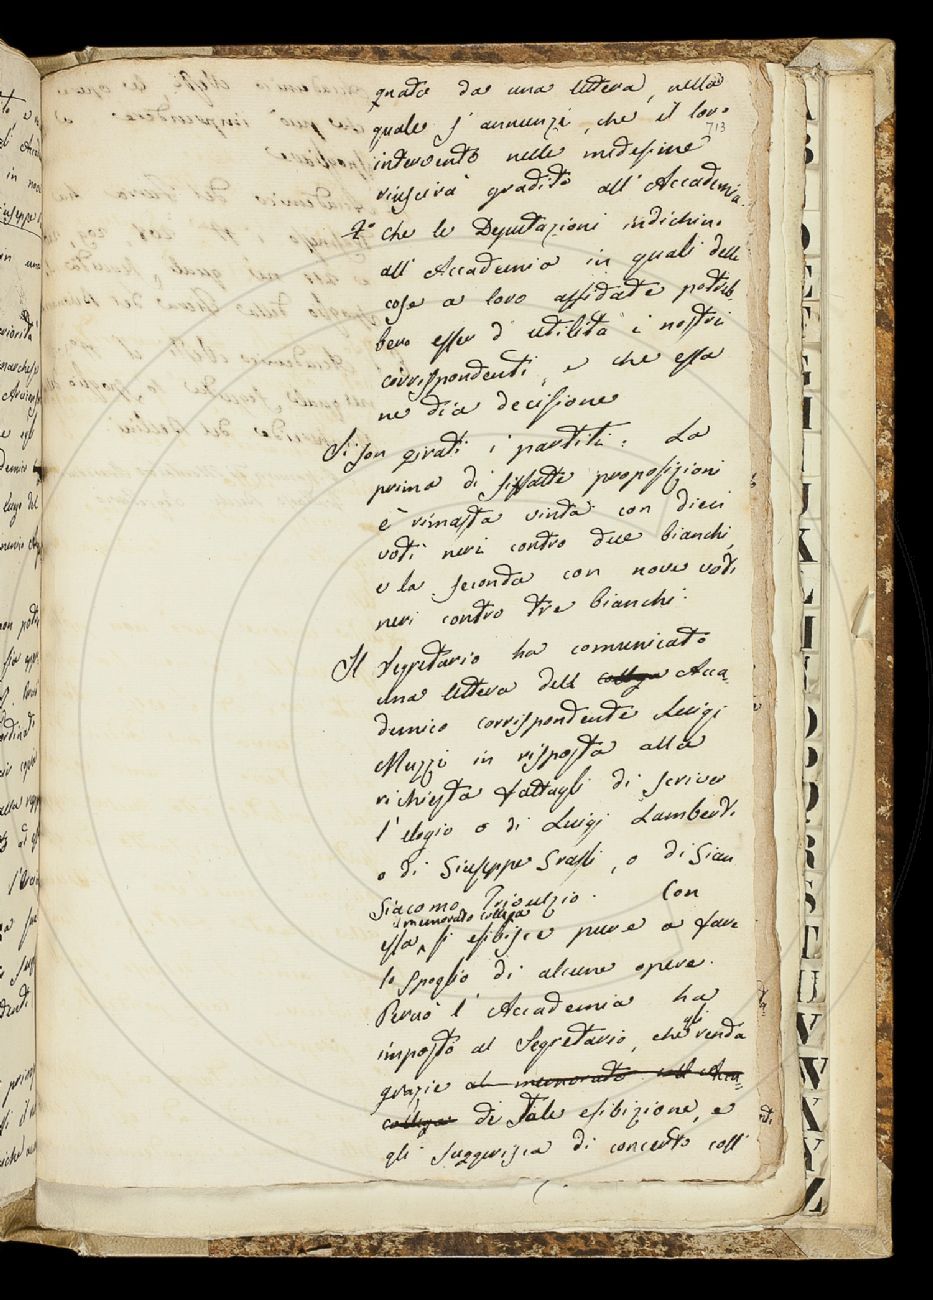 gnate da una lettera, nella
quale s'annunzj, che il loro
713
intervento nelle medesime
riuscirà gradito all'Accademia.
2° che le Deputazioni indichino
all'Accademia in quali delle
cose a loro affidate potreb,
bero esser d'utilità i nostri
corrispondenti, e che essa
ne dia decisione
Si son girati i partiti. La
prima di siffatte proposizioni
è rimasta vinta con dieci
voti neri contro due bianchi,
e la seconda con nove voti
neri contro tre bianchi.
Il Segretario ha comunicato
una lettera dell collega Acca,
demico corrispondente Luigi
Muzzi in risposta alla
richiesta fattagli di scriver
l'elogio o di Luigi Lamberti
o di Giuseppe Grassi, o di Gian
Giacomo Trioulzio. Con
il memorato collega
essa si esibisce pure a fare
lo spoglio di alcune opere.
Perciò l'Accademia ha
gli
imposto al Segretario, che renda
grazie al memorato Acca,
collega di tale esibizione, e
gli suggerisca di concerto coll'
A
B
D
E
F
G
H
I
J
K
L
M
N
O
P
Q
R
S
T
U
V
W
X
Y
Z